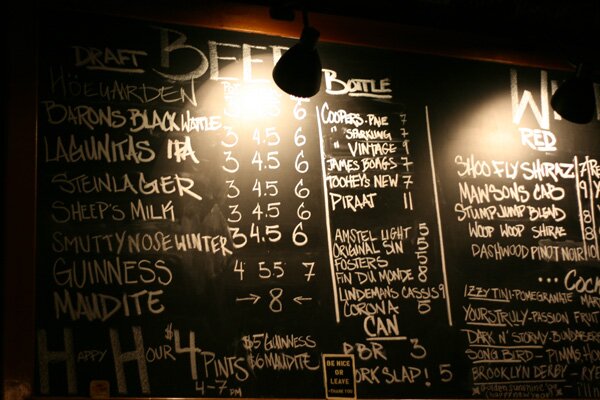 DRAFT BEER
HOEGAARDEN 3 4.5 6
BARONS BLACK WATTLE 3 4.5 6
LAGUNITAS IPA 3 4.5 6
STEINLAGER 3 4.5 6
SHEEP'S MILK 3 4.5 6
SMUTTYNOSE WINTER 3 4.5 6
GUINNESS 4 55 7
MAUDITE → 8 ←
HAPPY HOUR $4 PINTS
4-7 PM
$5 GUINNESS
$6 MAUDITE
BOTTLE
COOPERS - PALE 7
" SPARKLING 7
" VINTAGE 9
JAMES BOAGS 7
TOOHEY'S NEW 7
PIRAAT 11
AMSTEL LIGHT 5
ORIGINAL SIN 5
FOSTERS 5
FIN DU MONDE 8
LINDEMANS CASSIS 9
CORONA 5
CAN
PBR 3
PORK SLAP! 5
BE NICE
OR
LEAVE
THANK YOU
RED
SHOO FLY SHIRAZ 7
MAWSONS CAB 9
STUMP JUMP BLEND 8
WOOP WOOP SHIRAZ 8
DASHWOOD PINOT NOIR 10
IZZY TINI - POMEGRANITE
YOURS TRULY - PASSION FRUIT
DARK N' STORMY -
SONG BIRD - PIMMS
BROOKLYN DERBY - RYE